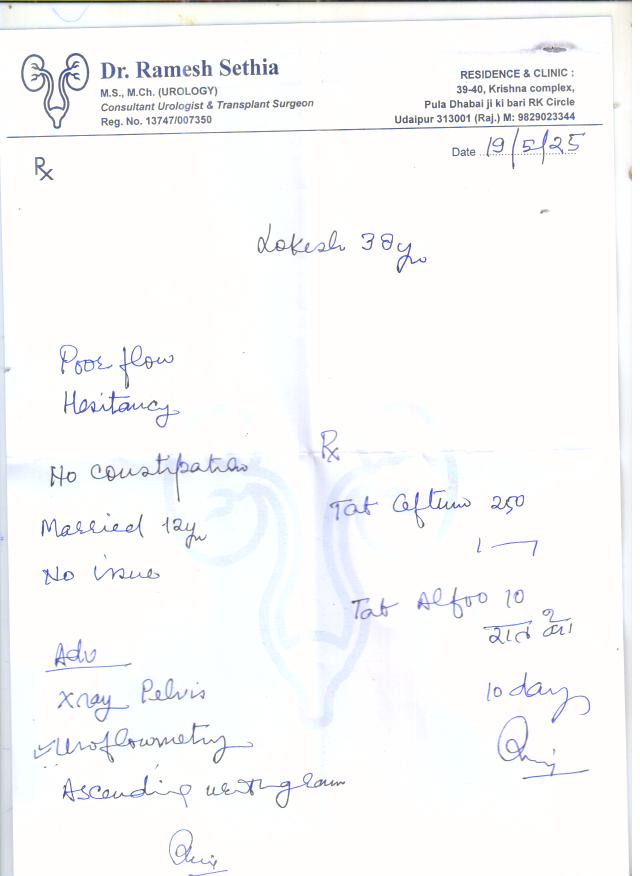 Dr. Ramesh Sethia
M.S., M.Ch. (UROLOGY)
Consultant Urologist & Transplant Surgeon
Reg. No. 13747/007350
RESIDENCE & CLINIC :
39-40, Krishna complex,
Pula Dhabai ji ki bari RK Circle
Udaipur 313001 (Raj.) M: 9829023344
Date 19/5/25
Rx
Lokesh 38yr
Poor flow
Hesitancy
No constipation
Married 12yr
No issue
Adv
Xray Pelvis
✓ Uroflowmetry
Ascending urethrogram
Rx
Tab Ceftum 250
1 — 1
Tab Alfoo 10
रात को
10 days